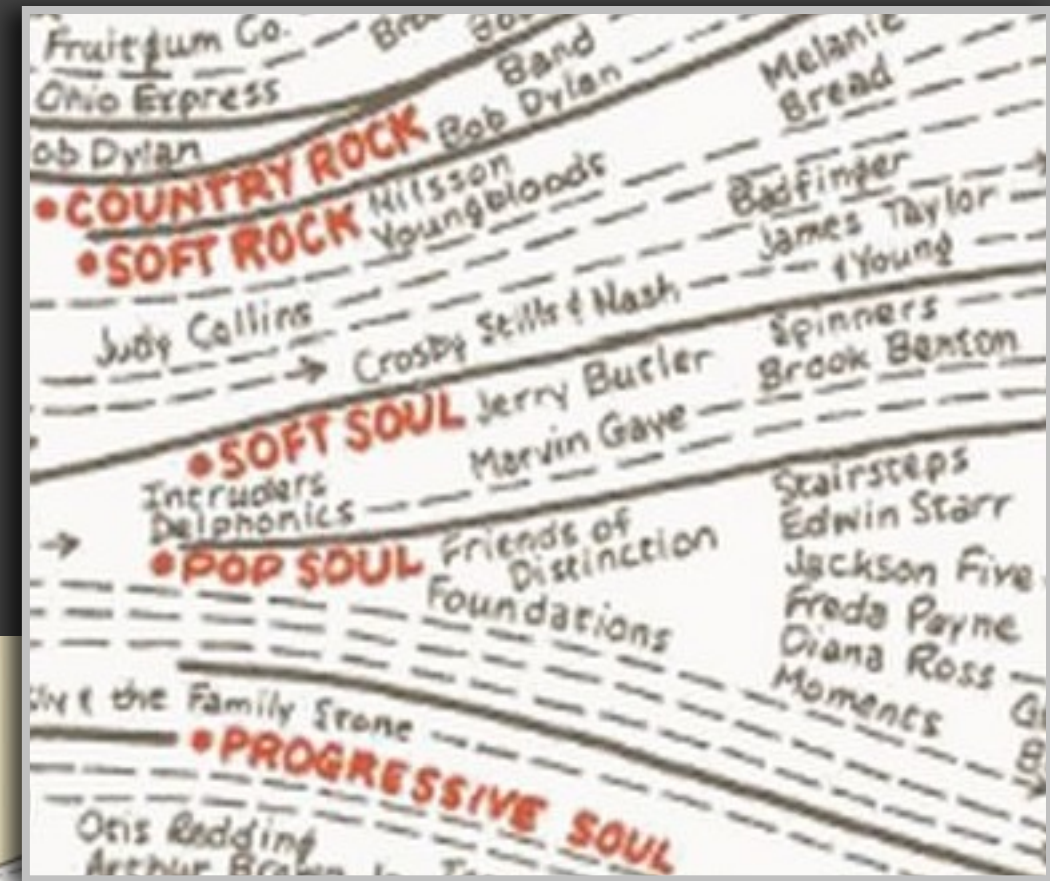 Fruitgum Co.
Ohio Express
Band
Bob Dylan
Melanie
Bread
ob Dylan
•COUNTRY ROCK
•SOFT ROCK
Nilsson
Youngbloods
Badfinger
James Taylor
& Young
Judy Collins
Crosby Stills & Nash
Spinners
Brook Benton
•SOFT SOUL
Jerry Butler
Marvin Gaye
Intruders
Delphonics
Stairsteps
Edwin Starr
Jackson Five
Freda Payne
Diana Ross
Moments
•POP SOUL
Friends of
Distinction
Foundations
& the Family Stone
•PROGRESSIVE SOUL
Otis Redding
Arthur